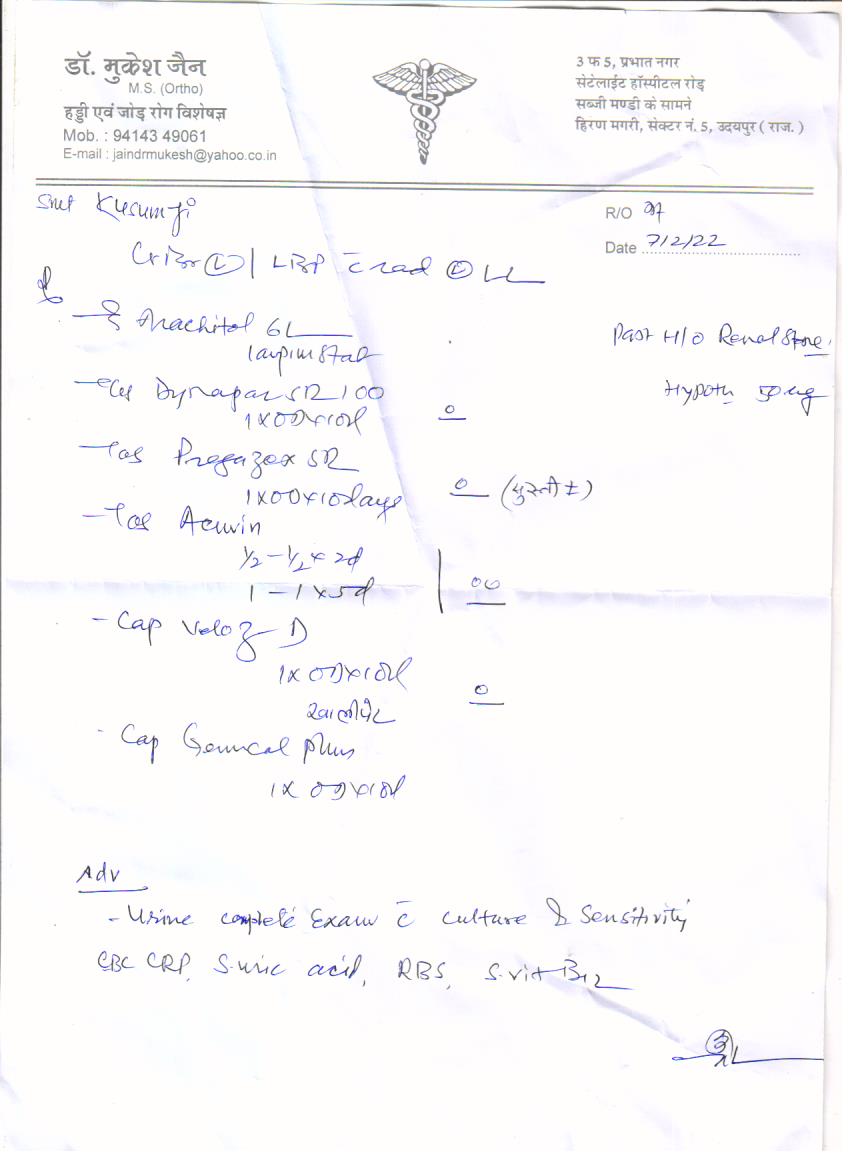 डॉ. मुकेश जैन
M.S. (Ortho)
हड्डी एवं जोड़ रोग विशेषज्ञ
Mob. : 94143 49061
E-mail : jaindrmukesh@yahoo.co.in
3 फ 5, प्रभात नगर
सेटेलाईट हॉस्पीटल रोड़
सब्जी मण्डी के सामने
हिरण मगरी, सेक्टर नं. 5, उदयपुर ( राज. )
Smt Kusumji
R/O
Date 7/2/22
LBP c̄ rad Ⓛ LL
Arachitol 6L
1 amp im stat
Past H/O Renal Stone
Dynapar SR 100
1 x OD x 10d
0
Hypoth 50 mg
Tab Pregazex SR
1 x OD x 10 days
0 (सुस्ती ±)
Tab Acuvin
½ - ½ x 2d
1 - 1 x 5d
00
- Cap Veloz D
1 x OD x 10d
0
खाली पेट
- Cap Gemcal plus
1 x OD x 10d
Adv
- Urine complete Exam c̄ culture & Sensitivity
CBC CRP, S. uric acid, RBS, S. vit B12